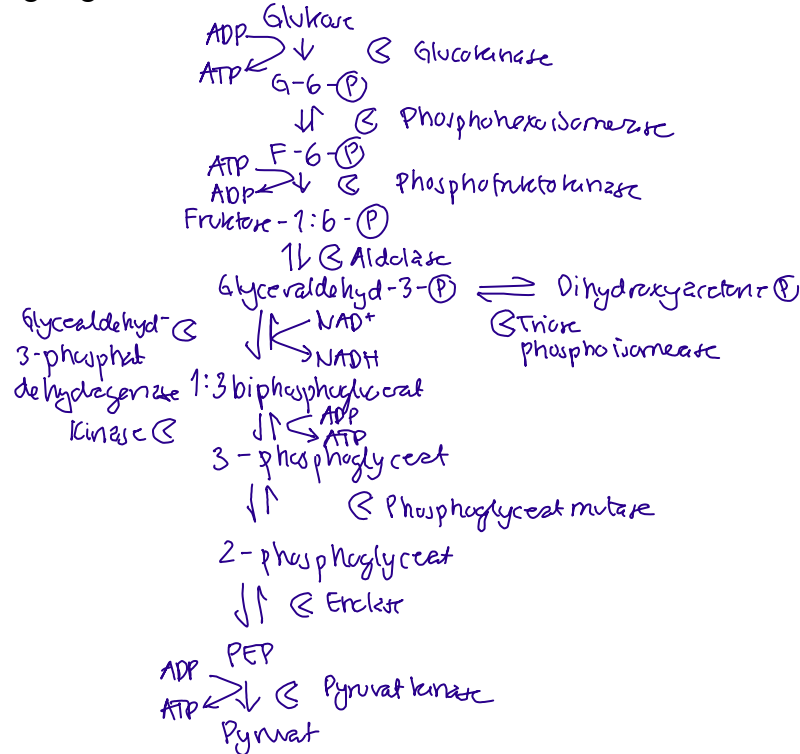 Glukose
ADP
ATP
Glucokinase
G-6-P
Phosphohexoisomerase
F-6-P
ATP
ADP
Phosphofruktokinase
Fruktose-1:6-P
Aldolase
Glyceraldehyd-3-P
Dihydroxyacetone P
Glycealdehyd-
3-phosphat
dehydrogenase
NAD+
NADH
Triose
phosphoisomease
1:3 biphosphoglycerat
Kinase
ADP
ATP
3-phosphoglycerat
Phosphoglycerat mutase
2-phosphoglycerat
Enolase
PEP
ADP
ATP
Pyruvat kinase
Pyruvat